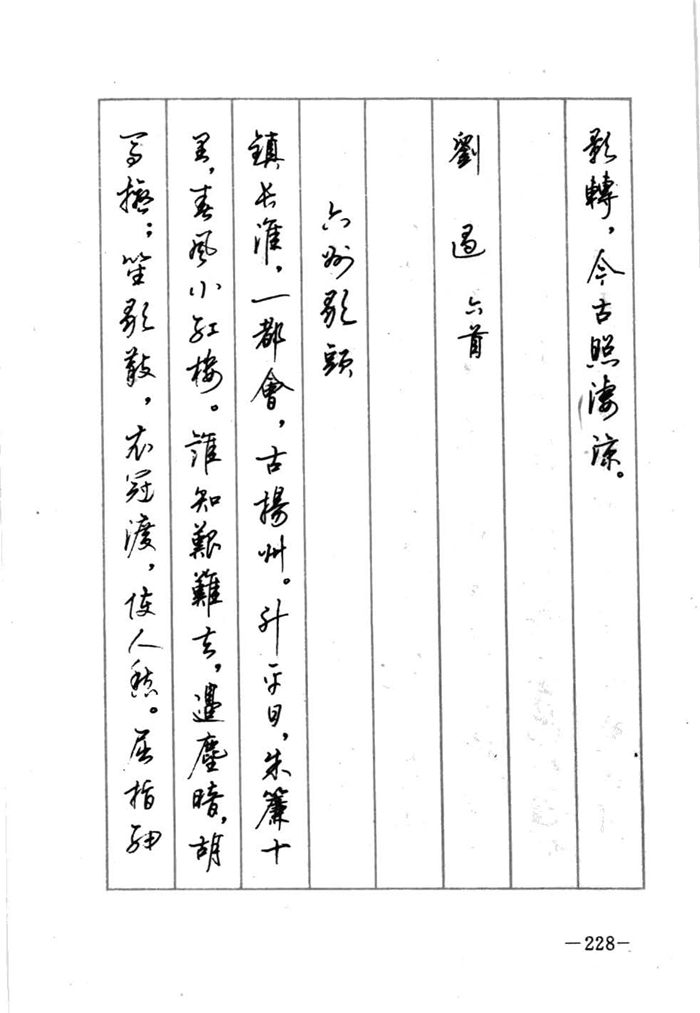 影轉，今古照淒涼。
劉過 六首
六州歌頭
鎮長淮，一都會，古揚州。升平日，朱簾十
里，春風小紅樓。誰知艱難去，邊塵暗，胡
馬擾；笙歌散，衣冠渡，使人愁。屈指細
—228—